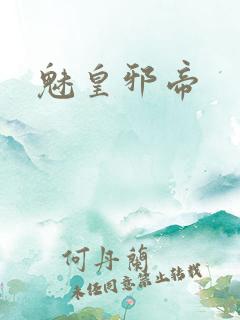 魅皇邪帝
何丹蘭
未经同意禁止转载